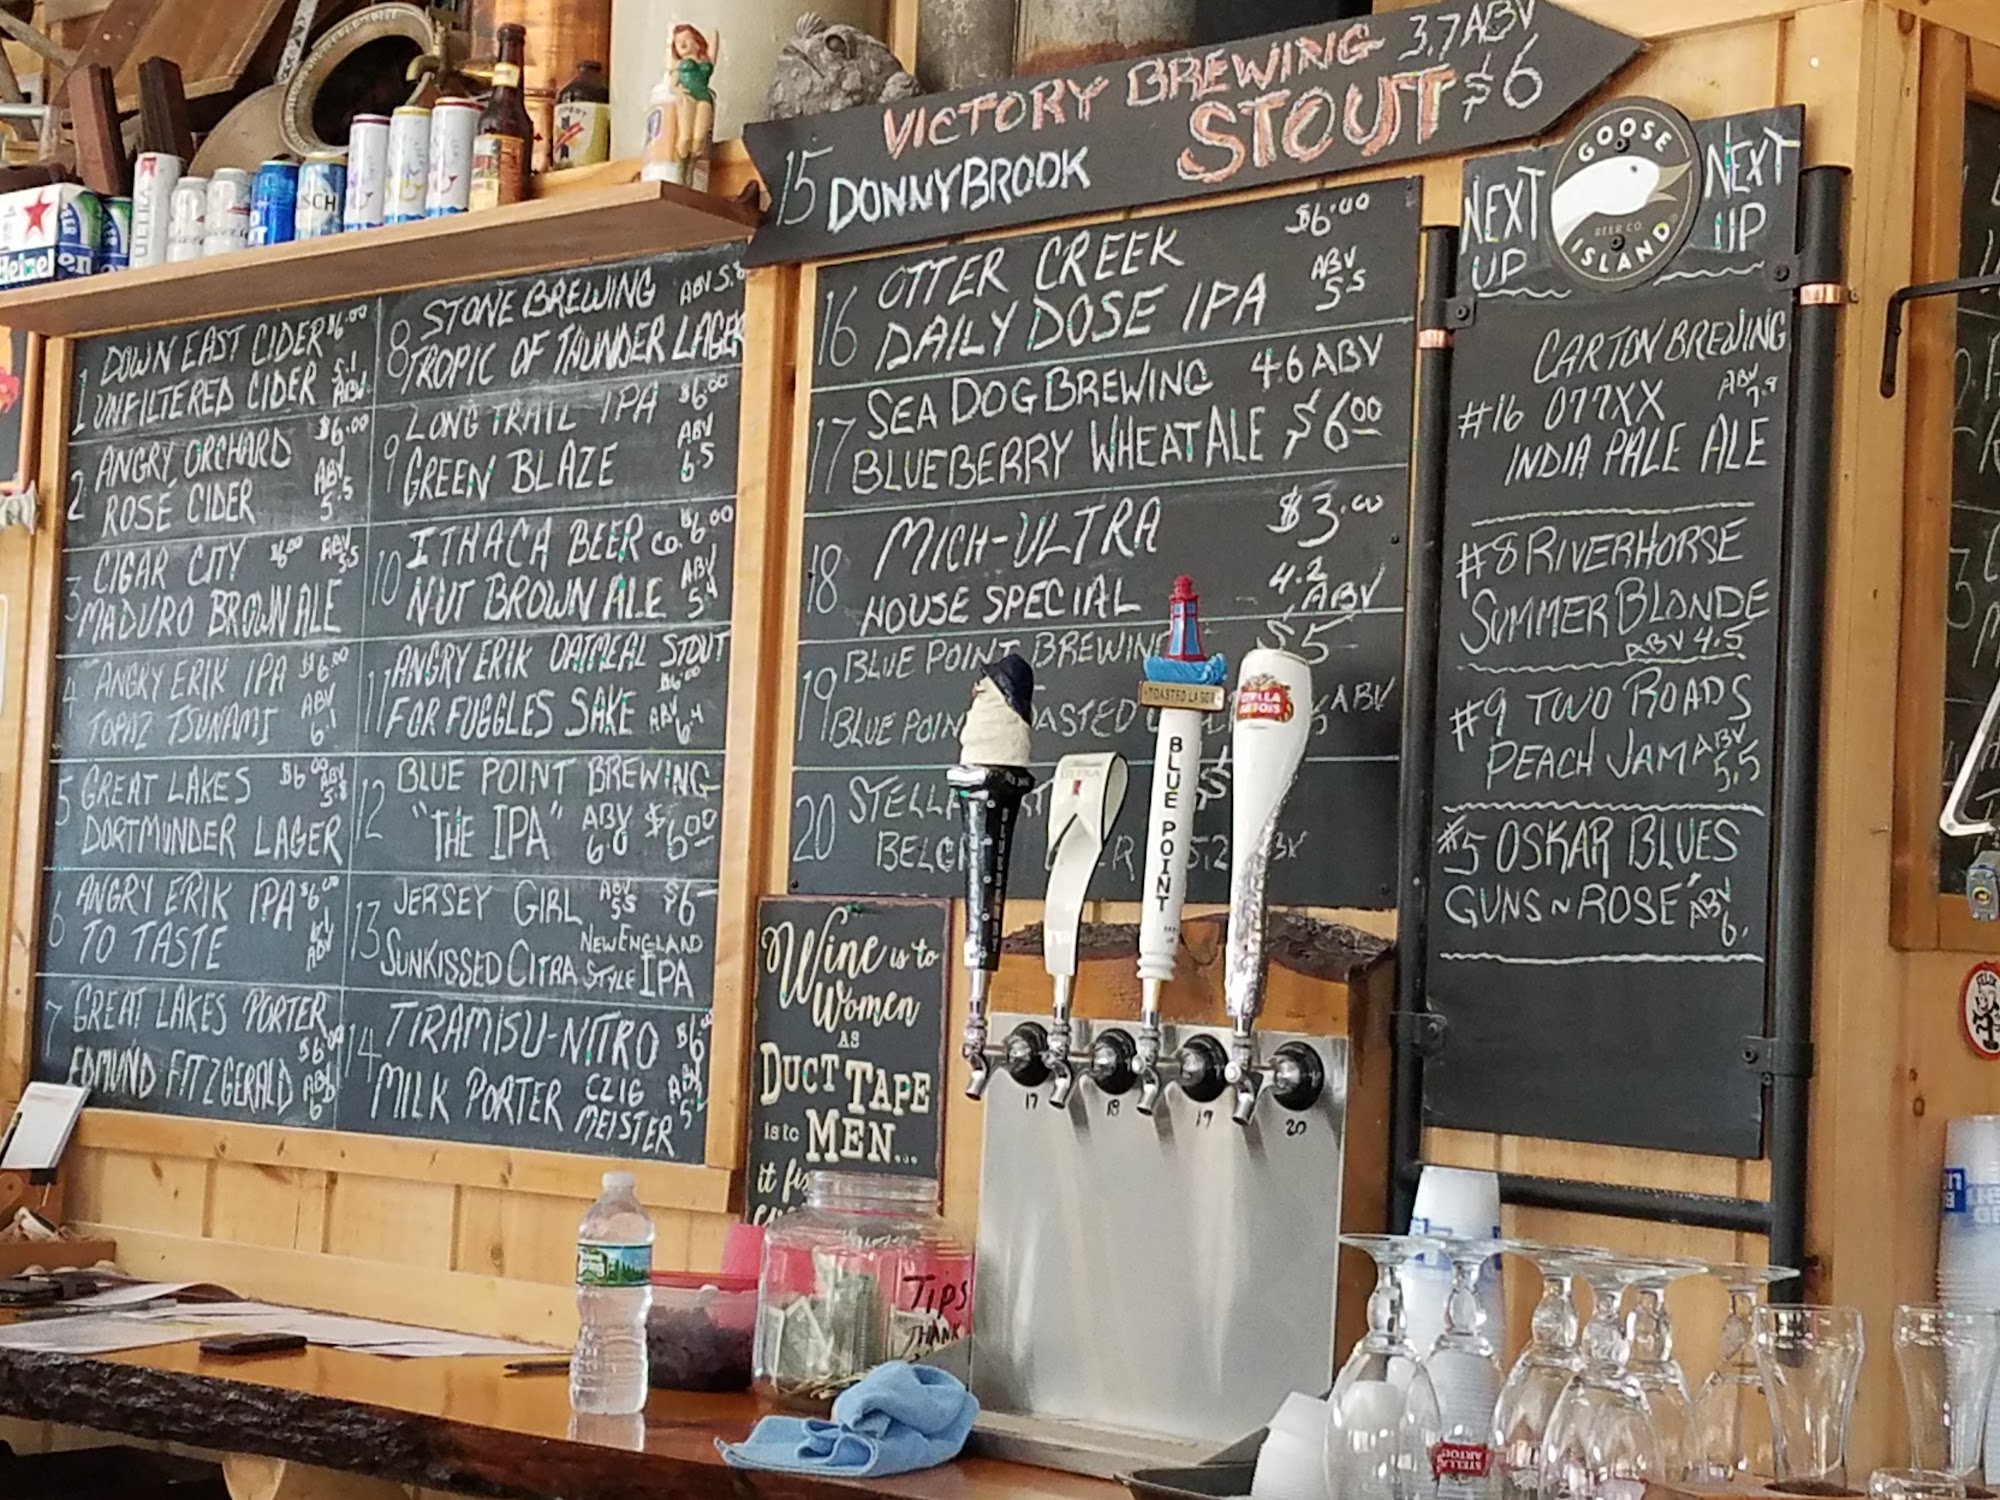 15 VICTORY BREWING 3.7 ABV
DONNYBROOK STOUT $6
1 DOWN EAST CIDER $6.00
UNFILTERED CIDER 5.1 ABV
2 ANGRY ORCHARD $6.00
ROSÉ CIDER ABV 5.5
3 CIGAR CITY $6.00 ABV 5.5
MADURO BROWN ALE
4 ANGRY ERIK IPA $6.00
TOPAZ TSUNAMI ABV 6.1
5 GREAT LAKES $6.00 ABV 5.8
DORTMUNDER LAGER
6 ANGRY ERIK IPA $6.00
TO TASTE ABV
7 GREAT LAKES PORTER
EDMUND FITZGERALD $6.00 ABV 6
8 STONE BREWING ABV 5.8
TROPIC OF THUNDER LAGER
9 LONG TRAIL IPA $6.00
GREEN BLAZE ABV 6.5
10 ITHACA BEER CO. $6.00
NUT BROWN ALE ABV 5.4
11 ANGRY ERIK OATMEAL STOUT
FOR FUGGLES SAKE $6.00 ABV 6.4
12 BLUE POINT BREWING
"THE IPA" ABV 6.0 $6.00
13 JERSEY GIRL ABV 5.5 $6
SUNKISSED CITRA NEW ENGLAND STYLE IPA
14 TIRAMISU-NITRO $6
MILK PORTER CZIG MEISTER ABV 5
16 OTTER CREEK $6.00
DAILY DOSE IPA ABV 5.5
17 SEA DOG BREWING 4.6 ABV
BLUEBERRY WHEAT ALE $6.00
18 MICH-ULTRA $3.00
HOUSE SPECIAL 4.2 ABV
19 BLUE POINT BREWING $5
BLUE POINT TOASTED ABV
20 STELLA
5.2
NEXT UP
GOOSE ISLAND
BEER CO.
NEXT UP
CARTON BREWING
#16 077XX ABV 7.8
INDIA PALE ALE
#8 RIVERHORSE
SUMMER BLONDE
ABV 4.5
#9 TWO ROADS
PEACH JAM ABV 5.5
#5 OSKAR BLUES
GUNS N ROSÉ ABV 6.
Wine is to
Women
AS
DUCT TAPE
is to MEN...
it
TOASTED LAGER
BLUE POINT
STELLA ARTOIS
17 18 19 20
TIPS
THANK
Heineken
ULTRA
STELLA ARTOIS